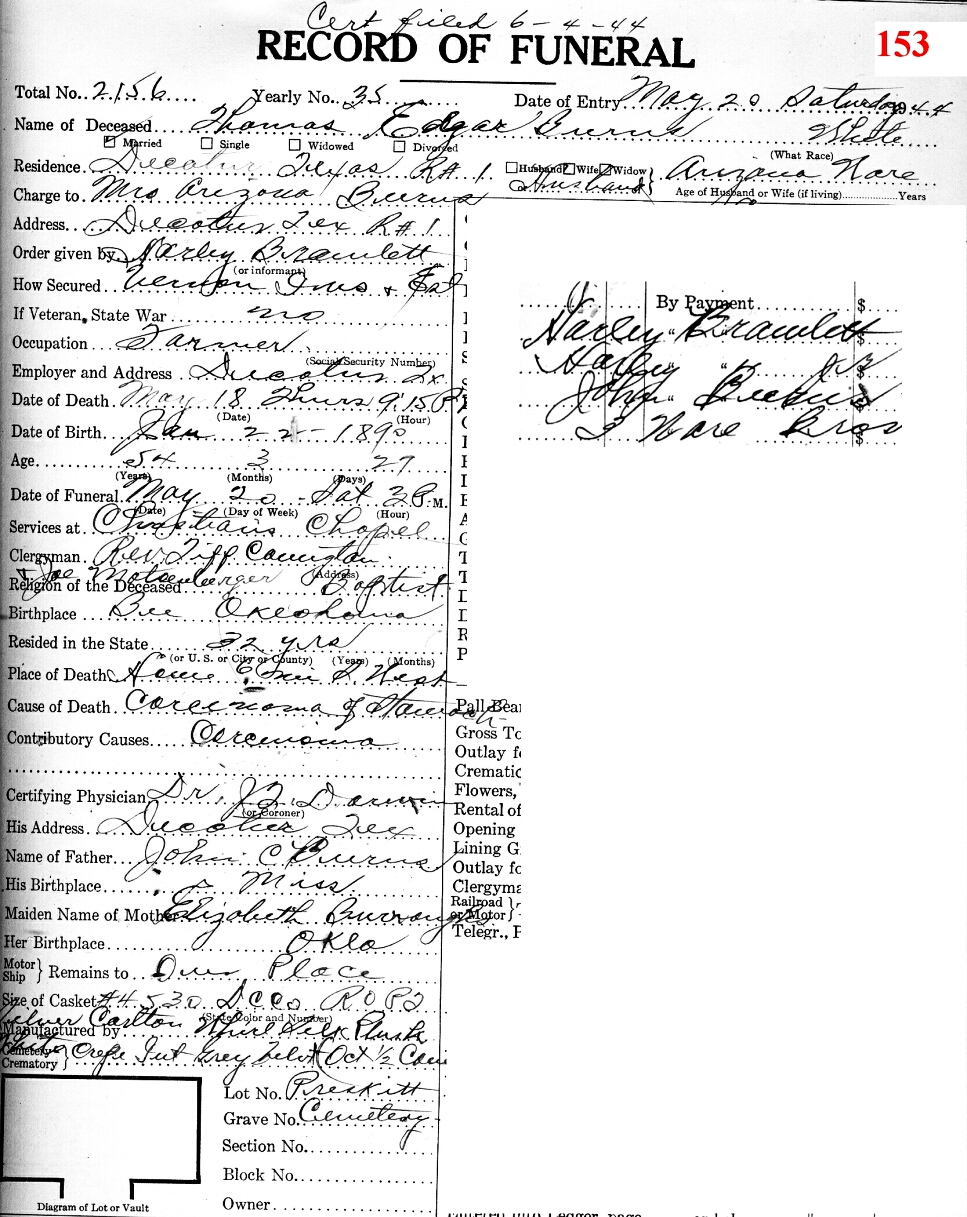 Cert filed 6-4-44
RECORD OF FUNERAL
153
Total No. 2156 Yearly No. 35 Date of Entry May 20 Saturday 1944
Name of Deceased Thomas Edgar Burns White
Married Single Widowed Divorced (What Race)
Residence Decatur Texas R#1. Husband Wife Widow or Husband Arizona Hare
Charge to Mrs Arizona Burns Age of Husband or Wife (if living) Years
Address Decatur Tex R#1
Order given by Harley Bramlett
(or informant)
How Secured Vernon Ims &
If Veteran, State War no
Occupation Farmer
(Social Security Number)
Employer and Address Decatur Tx
Date of Death May 18 Thurs 9:15 P
(Date) (Hour)
Date of Birth Jan 22 - 1890
Age 54 3 27
(Years) (Months) (Days)
Date of Funeral May 20 - Sat 3 P.M.
(Date) (Day of Week) (Hour)
Services at Christians Chapel
Clergyman Rev. Tiff Covington
(Address)
& Joe Motsenberger
Religion of the Deceased Baptist
Birthplace Bee Oklahoma
Resided in the State 32 yrs
(or U. S. or City or County) (Years) (Months)
Place of Death Home 6 mi S. West
Cause of Death Carcinoma of Stomach
Contributory Causes Carcinoma
Certifying Physician Dr. J.
(or Coroner)
His Address Decatur Tex
Name of Father John C Burns
His Birthplace Miss.
Maiden Name of Mother Elizabeth Burroughs
Her Birthplace Okla
Motor Ship } Remains to Our Place
Size of Casket #4530
(State Color and Number)
Silver Carlton Silk Plush
Manufactured by
White Crepe Int Grey Oct 1/2
Cemetery Crematory }
Lot No. Preskitt
Grave No. Cemetery
Section No.
Block No.
Owner
Diagram of Lot or Vault
By Payment $
Harley Bramlett $
Harley " JR $
John Burns $
3 Hare Bros $
Pall Bear
Gross To
Outlay fo
Crematio
Flowers,
Rental of
Opening
Lining G
Outlay fo
Clergyma
Railroad or Motor }
Telegr., F